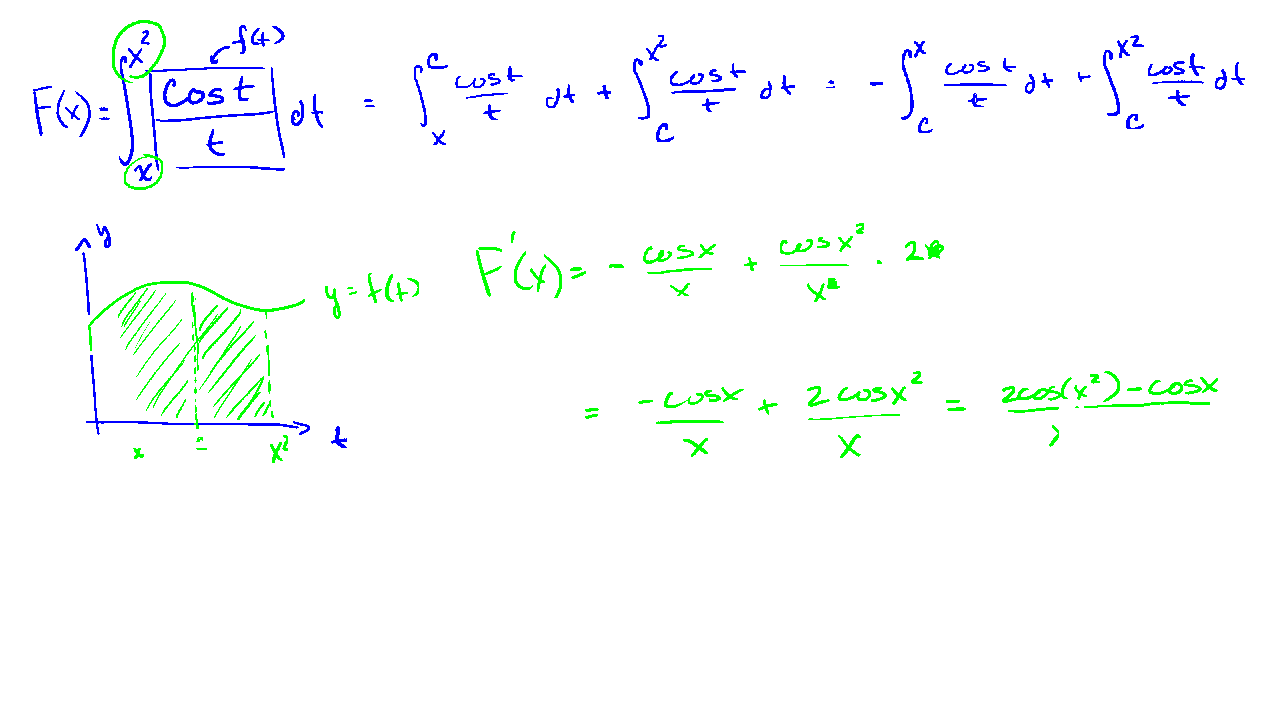 F(x) = ∫_x^{x²} cos t / t dt = ∫_x^c cos t / t dt + ∫_c^{x²} cos t / t dt = - ∫_c^x cos t / t dt + ∫_c^{x²} cos t / t dt
f(t)
y
F'(x) = - cos x / x + cos x² / x · 2
y = f(t)
= -cos x / x + 2 cos x² / x = 2cos(x²) - cos x /
x = x² t